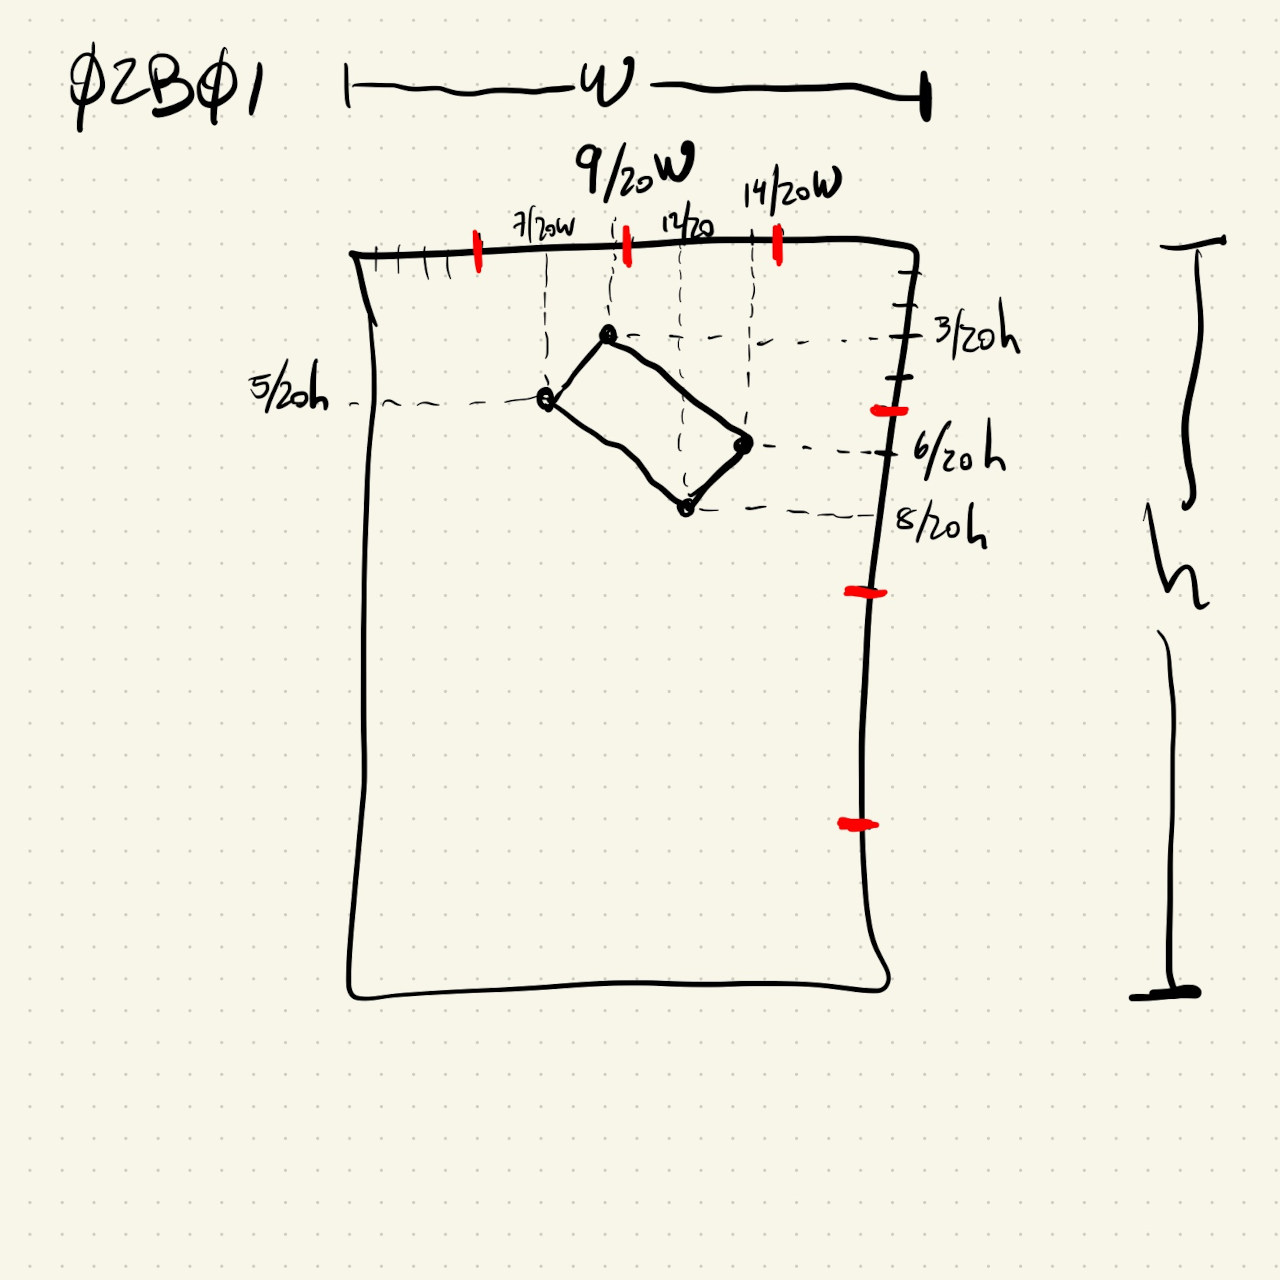 Ø2BØ1
W
9/20W
14/20W
7/20W
12/20
3/20h
5/20h
6/20h
8/20h
h